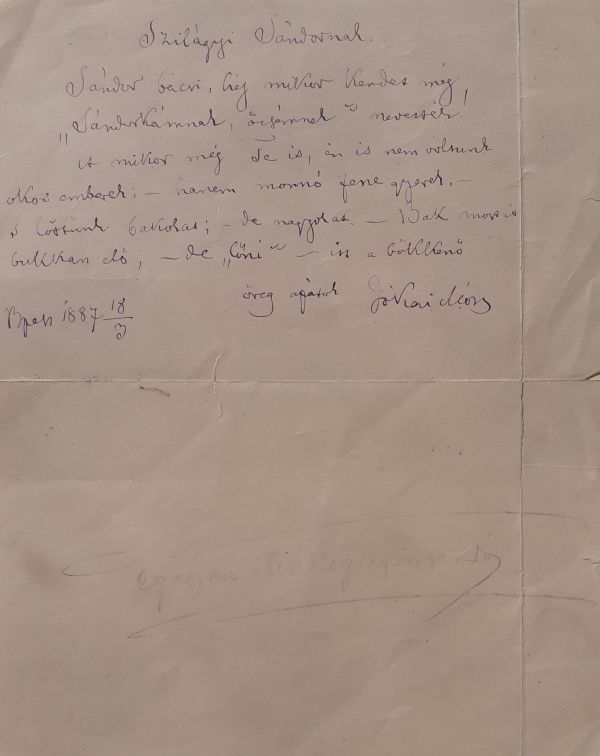 Szilágyi Sándornak.
Sándor bácsi, hej mikor kendet még
„Sándorkámnak, öcsémnek" nevezték!
És mikor még Te is, én is nem voltunk
okos emberek; — hanem monnó fene gyerek. —
S lőttünk bakokat; — de nagyokat. — Bak most is
bukkan elő, — de „lőni" — itt a bökkenő.
öreg apátok Jókai Mór
Bpest 1887 18/3
egészen